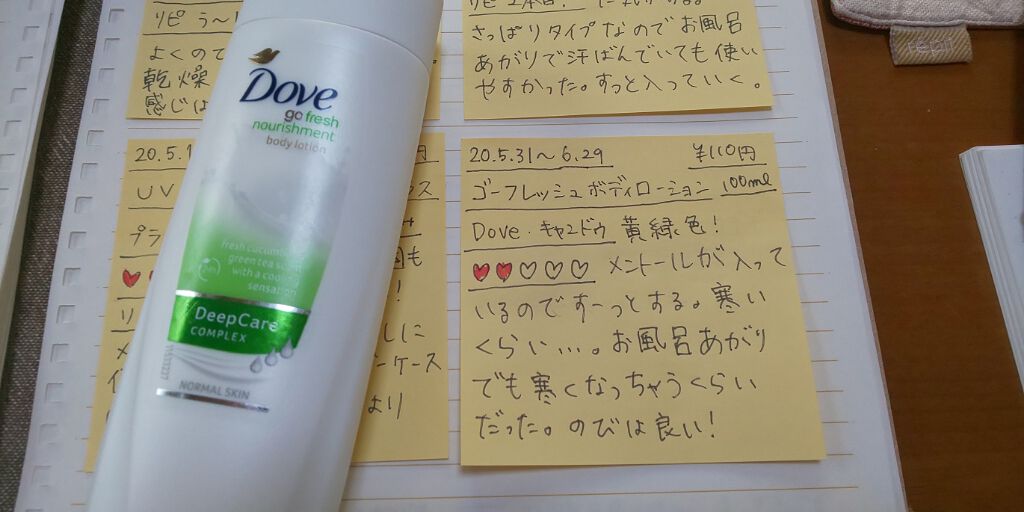 リピ う〜
よくので
乾燥
感じは
リピ2本目!
さっぱりタイプなのでお風呂
あがりで汗ばんでいても使い
やすかった。すっと入っていく。
Dove
go fresh
nourishment
body lotion
fresh cucumber
green tea scent
with a cooling
sensation
24h
DeepCare
COMPLEX
NORMAL SKIN
20.5.1
円
UV
ス
プラ
も
!
リ
しに
メ
ーケース
より
20.5.31〜6.29 ¥110円
ゴーフレッシュボディローション 100ml
Dove・キャンドゥ 黄緑色!
メントールが入って
いるのですーっとする。寒い
くらい…。お風呂あがり
でも寒くなっちゃうくらい
だった。のびは良い!
repil